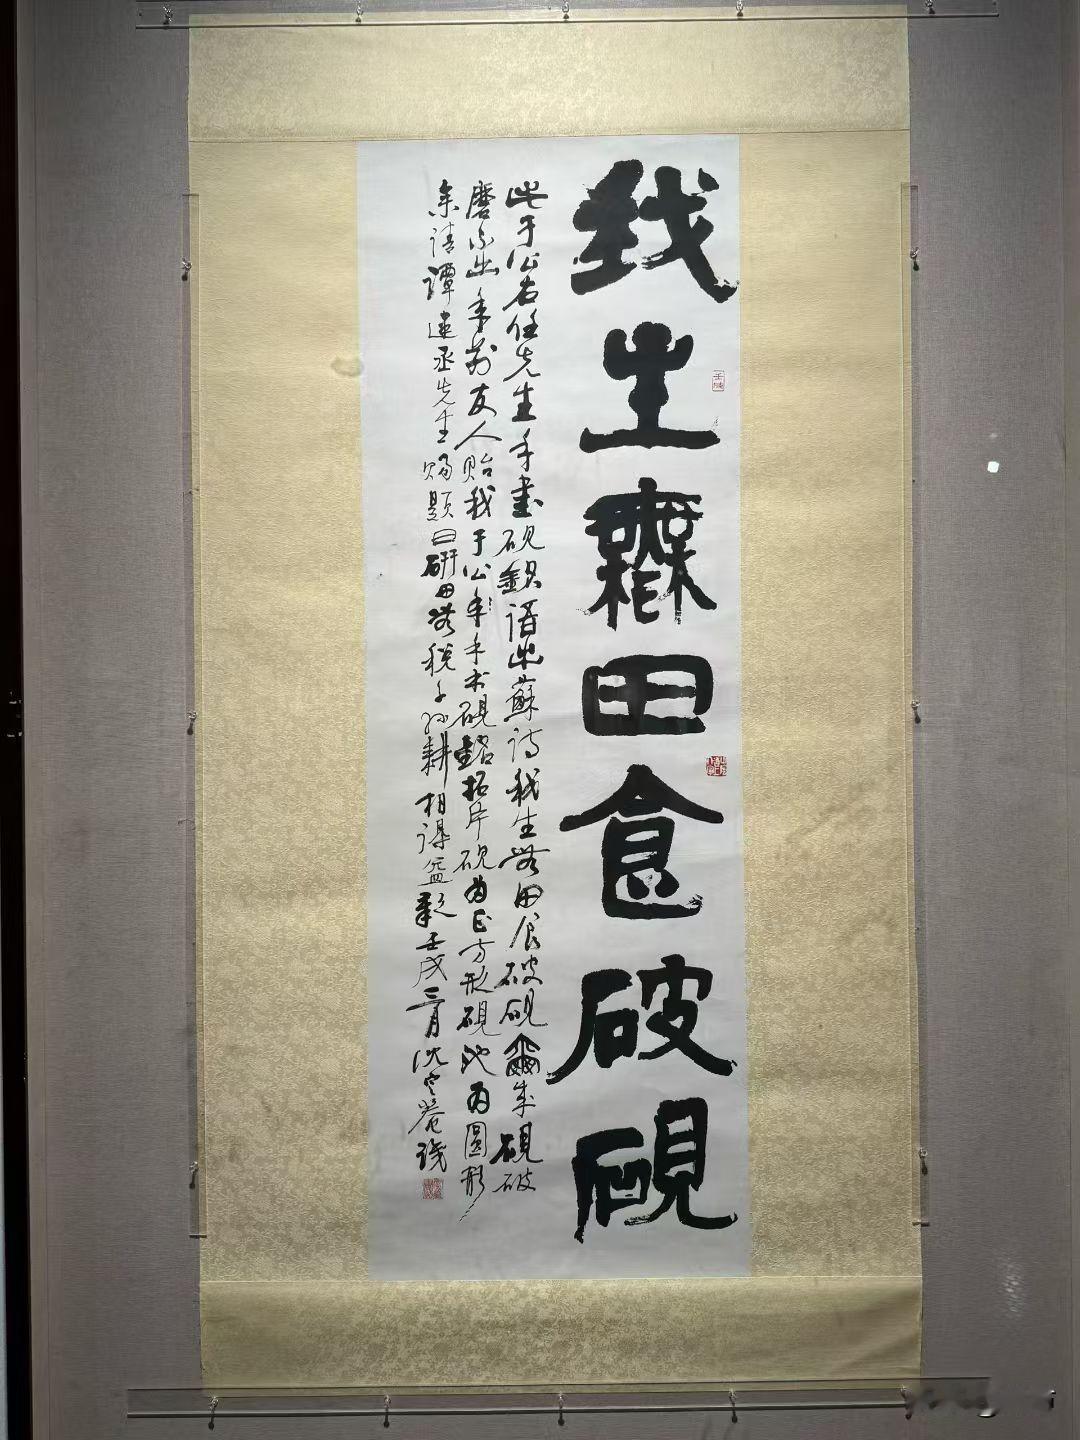 我生無田食破硯
此于公右任先生手書硯銘語出蘇詩我生無田食破硯爾來硯破
磨不出年前友人貽我于公手書硯銘拓片硯為正方形硯池為圓形
余請譚建丞先生賜題曰研田無稅子孫耕相得益彰壬戌三月沈定庵識